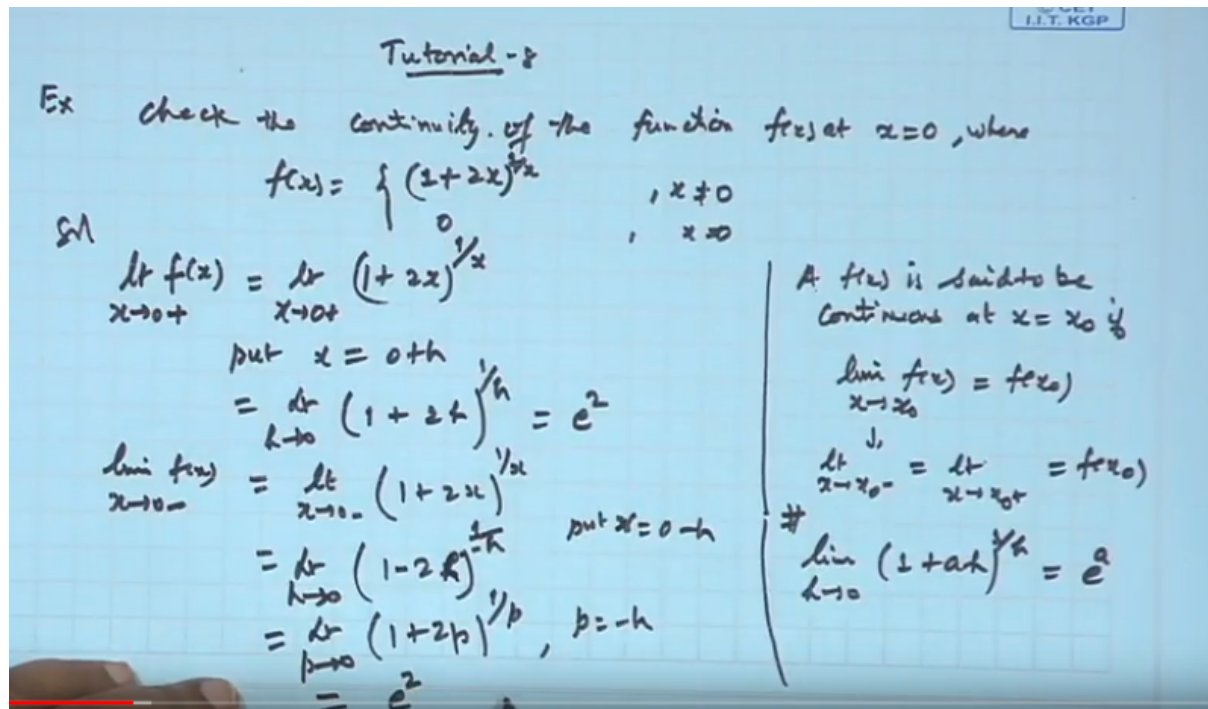 I.I.T. KGP
Tutorial - 8
Ex check the continuity of the function f(x) at x=0, where
f(x) = { (1+2x)^{1/x} , x≠0
0 , x=0
Sol
lt_{x→0+} f(x) = lt_{x→0+} (1+2x)^{1/x}
put x = 0+h
= lt_{h→0} (1+2h)^{1/h} = e^2
lim_{x→0-} f(x) = lt_{x→0-} (1+2x)^{1/x}
put x = 0-h
= lt_{h→0} (1-2h)^{1/-h}
= lt_{p→0} (1+2p)^{1/p}, p=-h
= e^2
A f(x) is said to be
continuous at x = x_0 if
lim_{x→x_0} f(x) = f(x_0)
↓
lt_{x→x_0-} = lt_{x→x_0+} = f(x_0)
#
lim_{h→0} (1+ah)^{1/h} = e^a